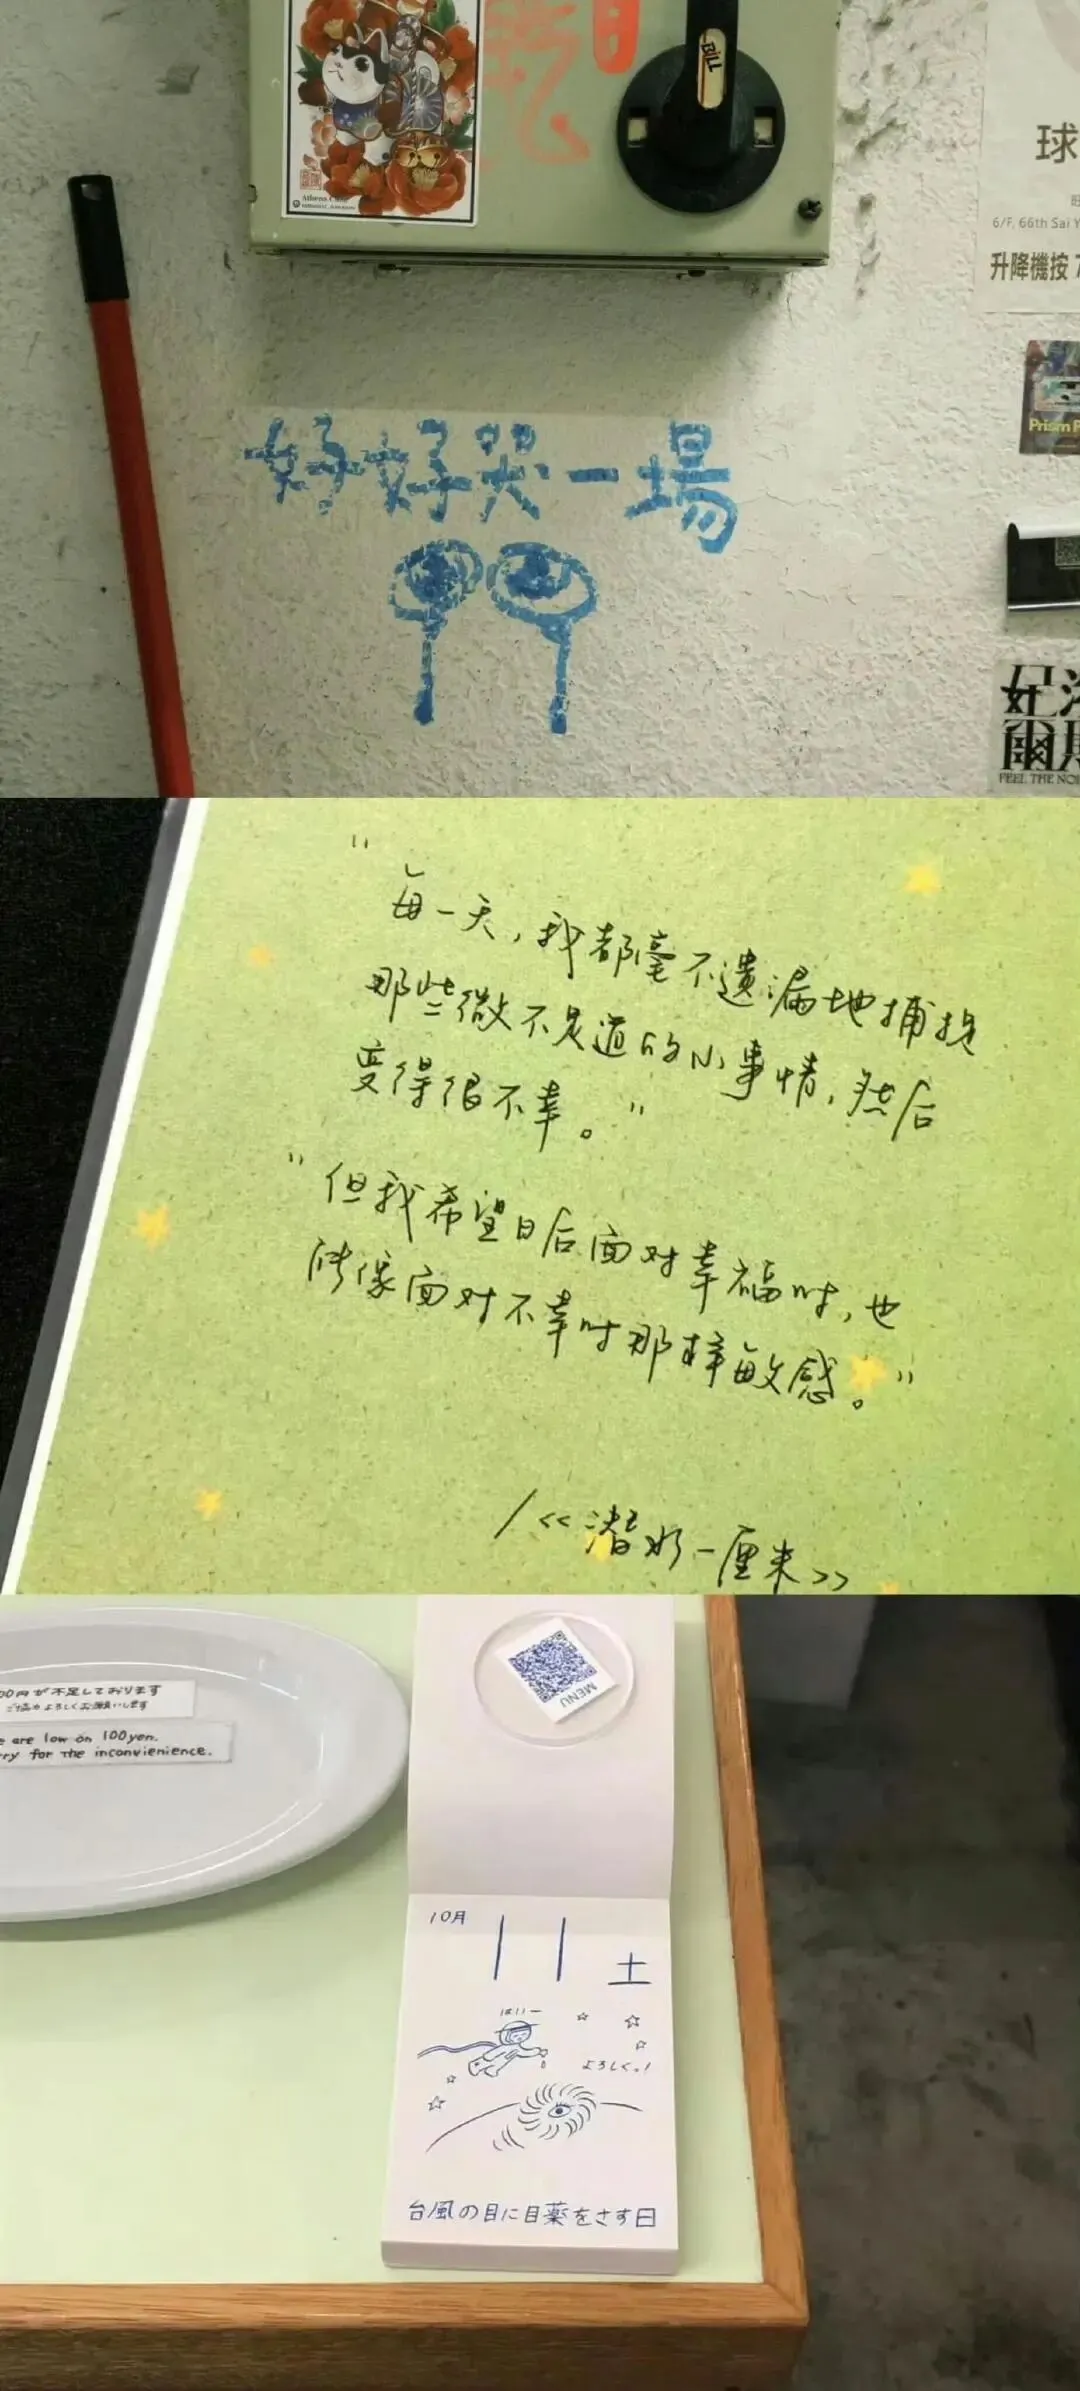 BILL
Athens Cube
球
6/F, 66th Sai Y
升降機按 7
Prism P
好好哭一場
FEEL THE NOI
"每一天，我都毫不遗漏地捕捉
那些微不足道的小事情，然后
变得很不幸。"
"但我希望日后面对幸福时，也
能像面对不幸时那样敏感。"
/<<潜好一厘米>>
00円が不足しております
ご協力よろしくお願いします
e are low on 100yen.
rry for the inconvienience.
MENU
10月
11 土
はいー
よろしくっ!
台風の目に目薬をさす日